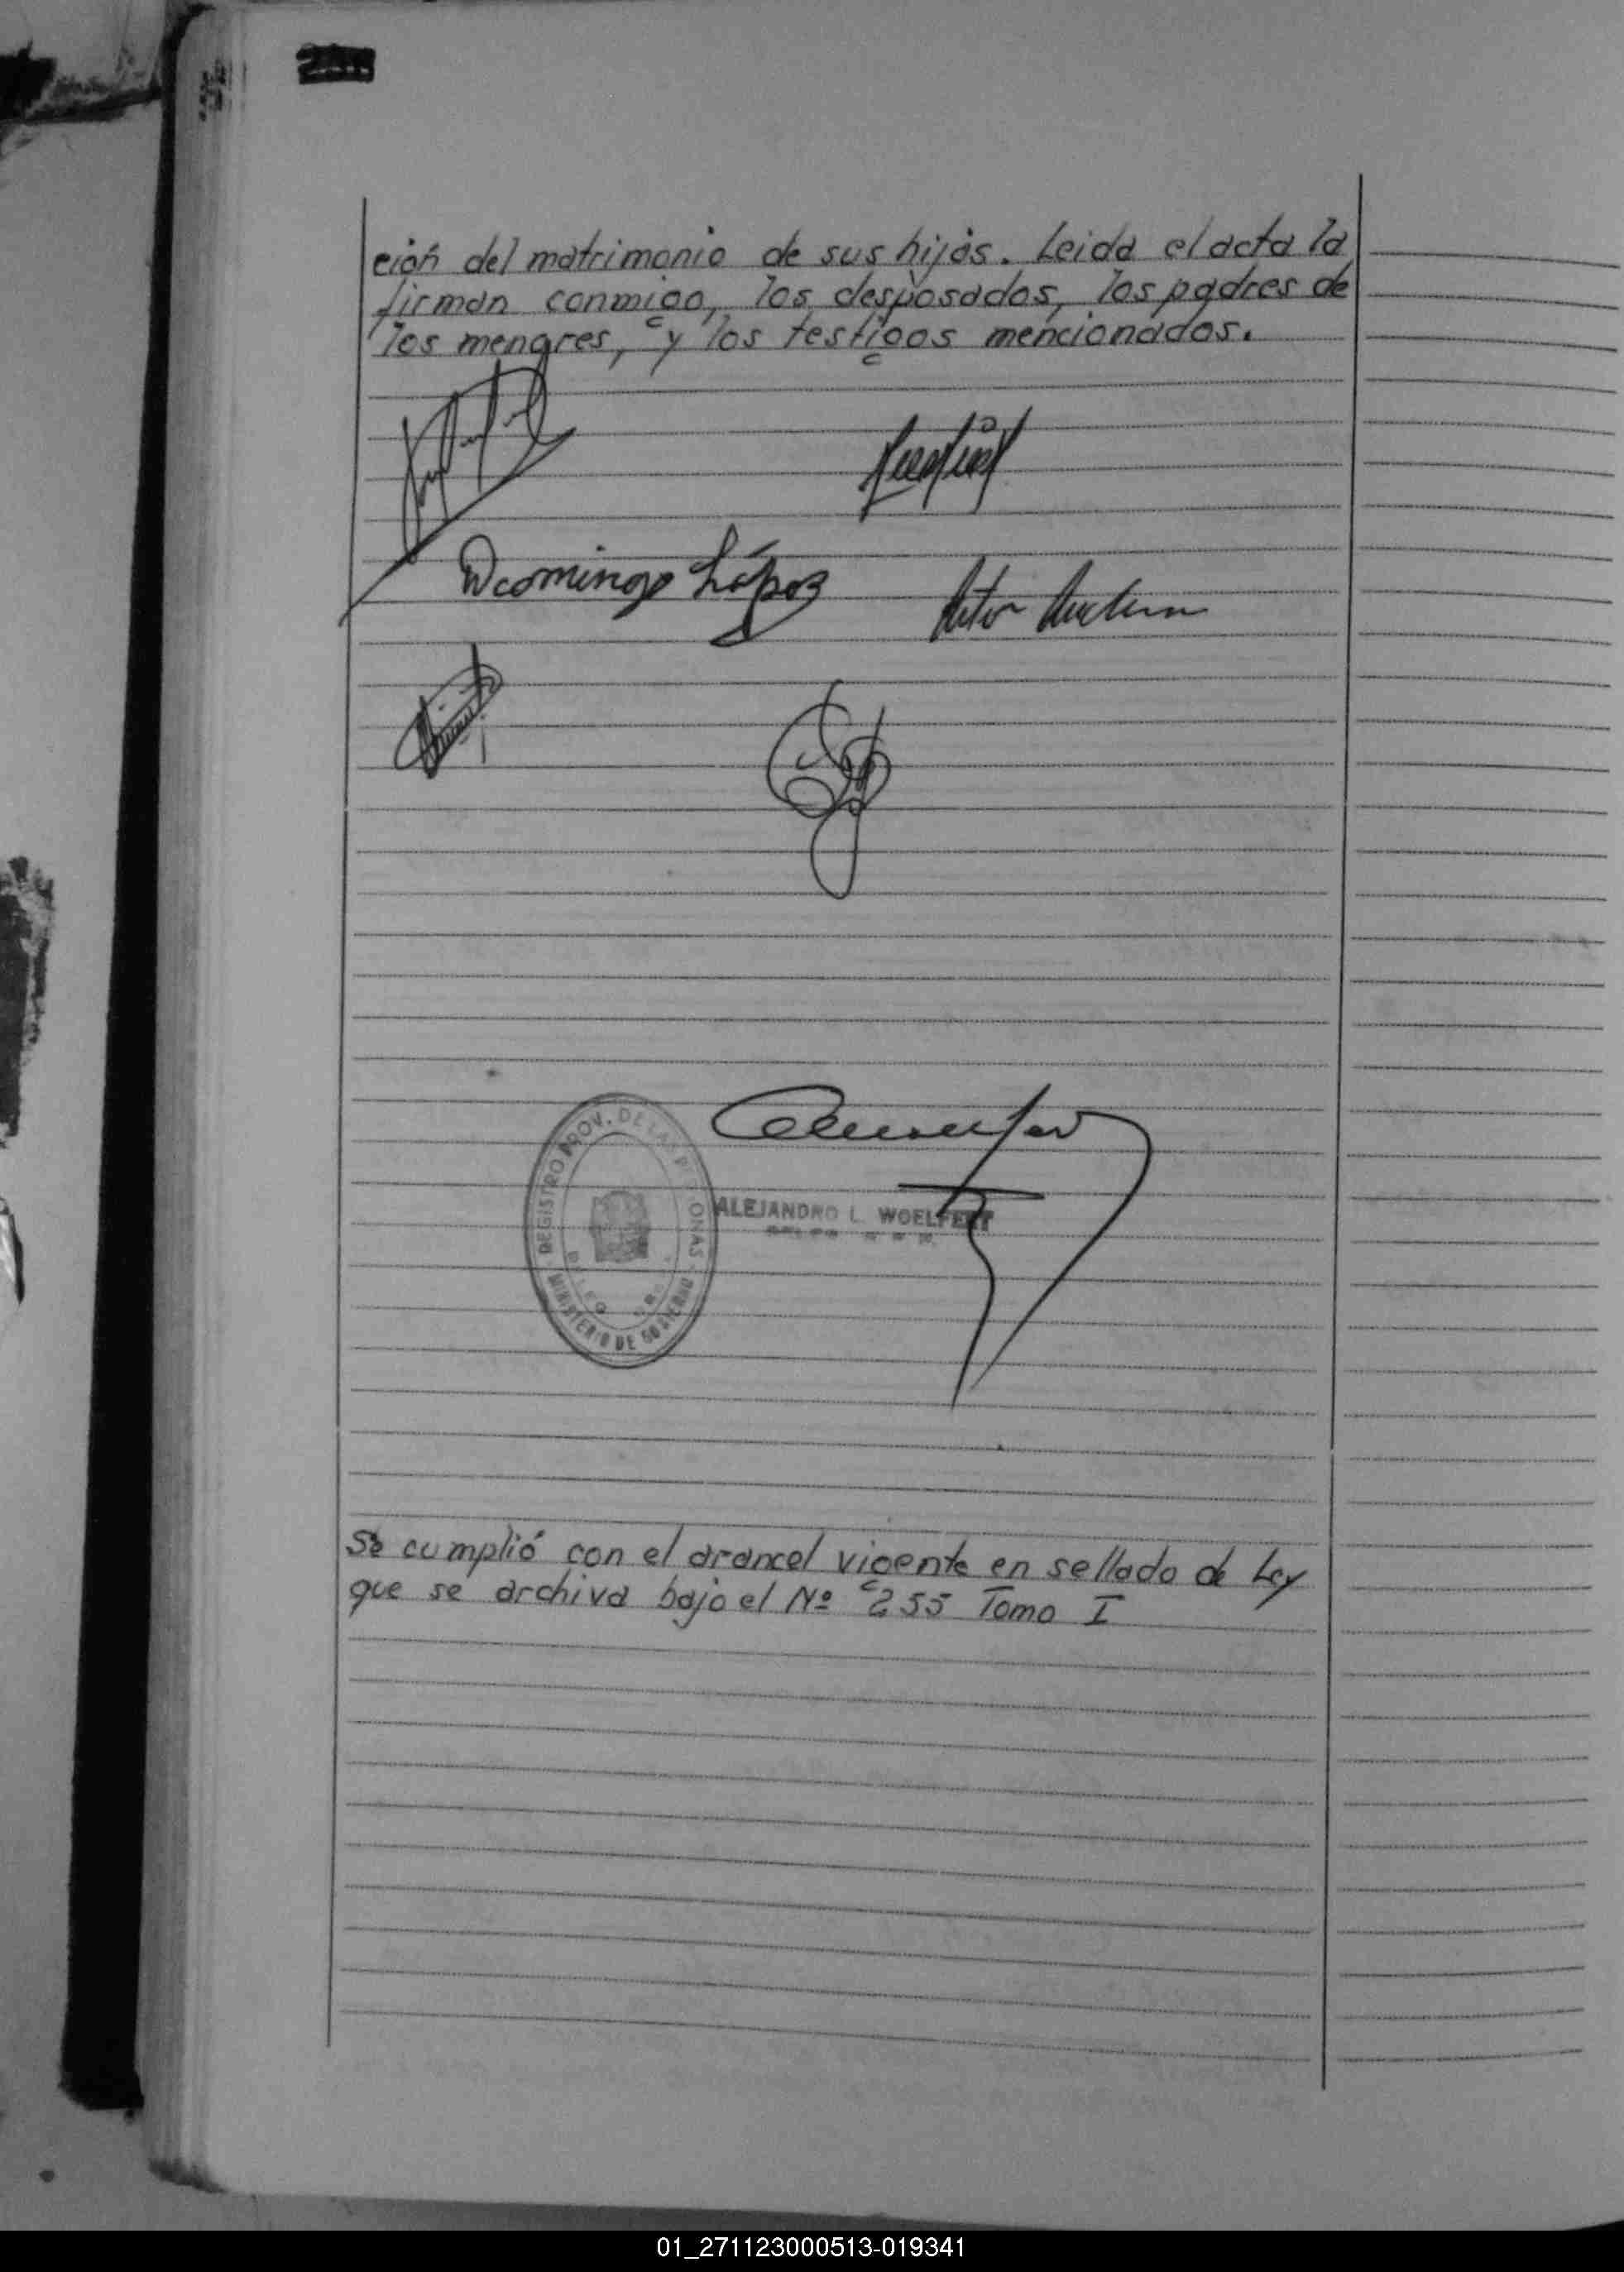 ción del matrimonio de sus hijos. Leida el acta la
firman conmigo, los desposados, los padres de
los menores, y los testigos mencionados.
Domingo López
REGISTRO PROV. DE LAS PERSONAS
MINISTERIO DE GOBIERNO
ALEJANDRO L. WOELFERT
Se cumplió con el arancel vigente en sellado de Ley
que se archiva bajo el Nº 255 Tomo I
01_271123000513-019341